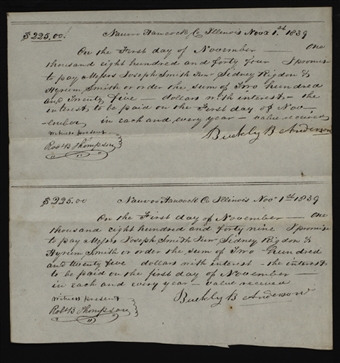 $225,00. Nauvoo Hancock Co Illinois Novr 1st 1839
On the First day of November — one
thousand eight hundred and forty four I promise
to pay Messrs Joseph Smith Junr Sidney Rigdon &
Hyrum Smith or order the sum of Two hundred
and Twenty five — dollars with interest — the
interest to be paid on the First day of Nov-
ember in each and every year — value received
witness present
Robt B Thompson
Buckley B Anderson
$225.00 Nauvoo Hancock Co Illinois Novr 1st 1839
On the First day of November — one
thousand eight hundred and forty nine I promise
to pay Messrs Joseph Smith Junr Sidney Rigdon &
Hyrum Smith or order the sum of Two hundred
and twenty five dollars with interest — the interest
to be paid on the first day of November —
in each and every year — value received
witness present
Robt B Thompson
Buckley B Anderson